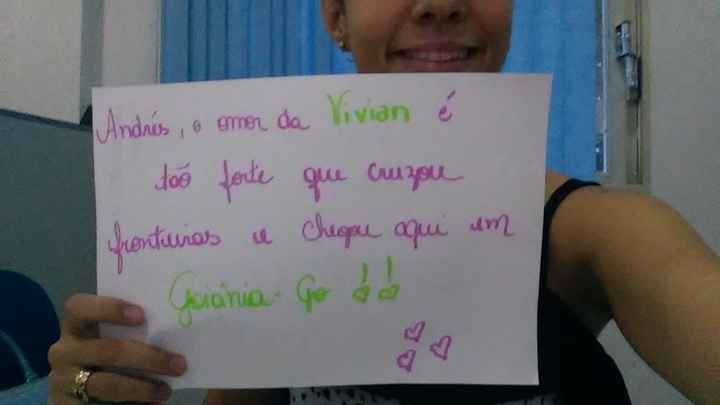 Andrés, o amor da Vivian é
tão forte que cruzou
fronteiras e chegou aqui em
Goiânia-Go !!